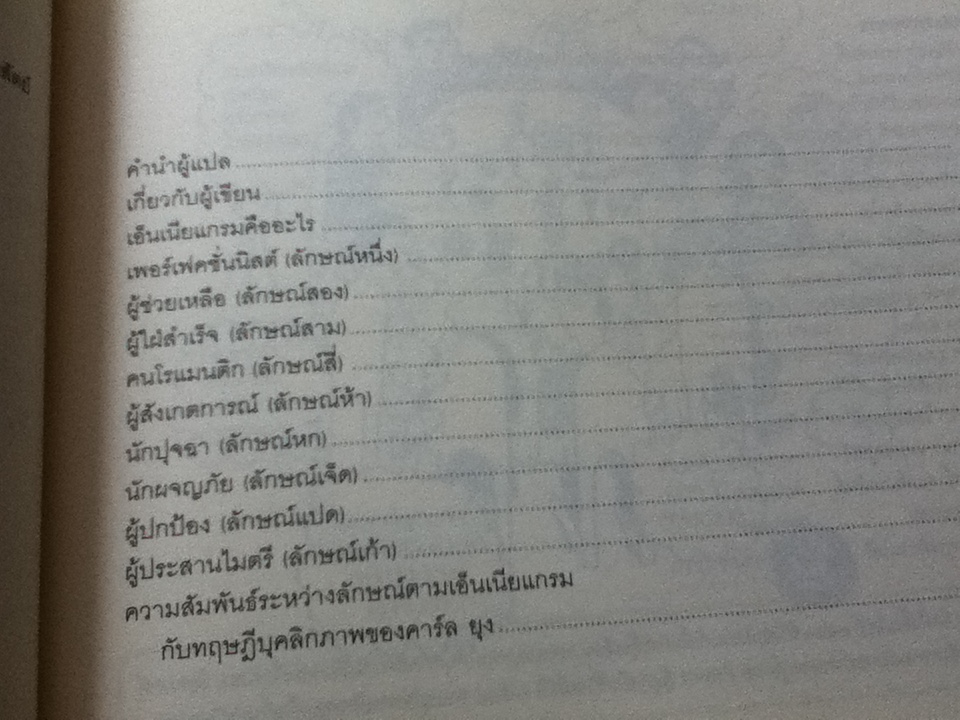 คำนำผู้แปล
เกี่ยวกับผู้เขียน
เอ็นเนียแกรมคืออะไร
เพอร์เฟคชั่นนิสต์ (ลักษณ์หนึ่ง)
ผู้ช่วยเหลือ (ลักษณ์สอง)
ผู้ใฝ่สำเร็จ (ลักษณ์สาม)
คนโรแมนติก (ลักษณ์สี่)
ผู้สังเกตการณ์ (ลักษณ์ห้า)
นักปุจฉา (ลักษณ์หก)
นักผจญภัย (ลักษณ์เจ็ด)
ผู้ปกป้อง (ลักษณ์แปด)
ผู้ประสานไมตรี (ลักษณ์เก้า)
ความสัมพันธ์ระหว่างลักษณ์ตามเอ็นเนียแกรม
กับทฤษฎีบุคลิกภาพของคาร์ล ยุง